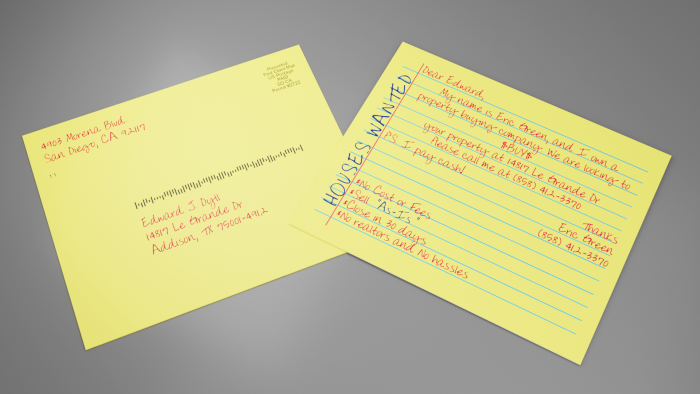 4903 Morena Blvd.
San Diego, CA 92117
Presorted
First Class Mail
US Postage
PAID
Edward J Dyll
14817 Le Grande Dr
Addison, TX 75001-4912
HOUSES WANTED
Dear Edward,
My name is Eric Green and I own a
property buying company. We are looking to
$BUY$
your property at 14817 Le Grande Dr
Please call me at (858) 412-3370
P.S. I pay cash!
Thanks
Eric Green
(858) 412-3370
*No Cost or Fees
*Sell "As-Is"
*Close in 30 days
*No realtors and No hassles